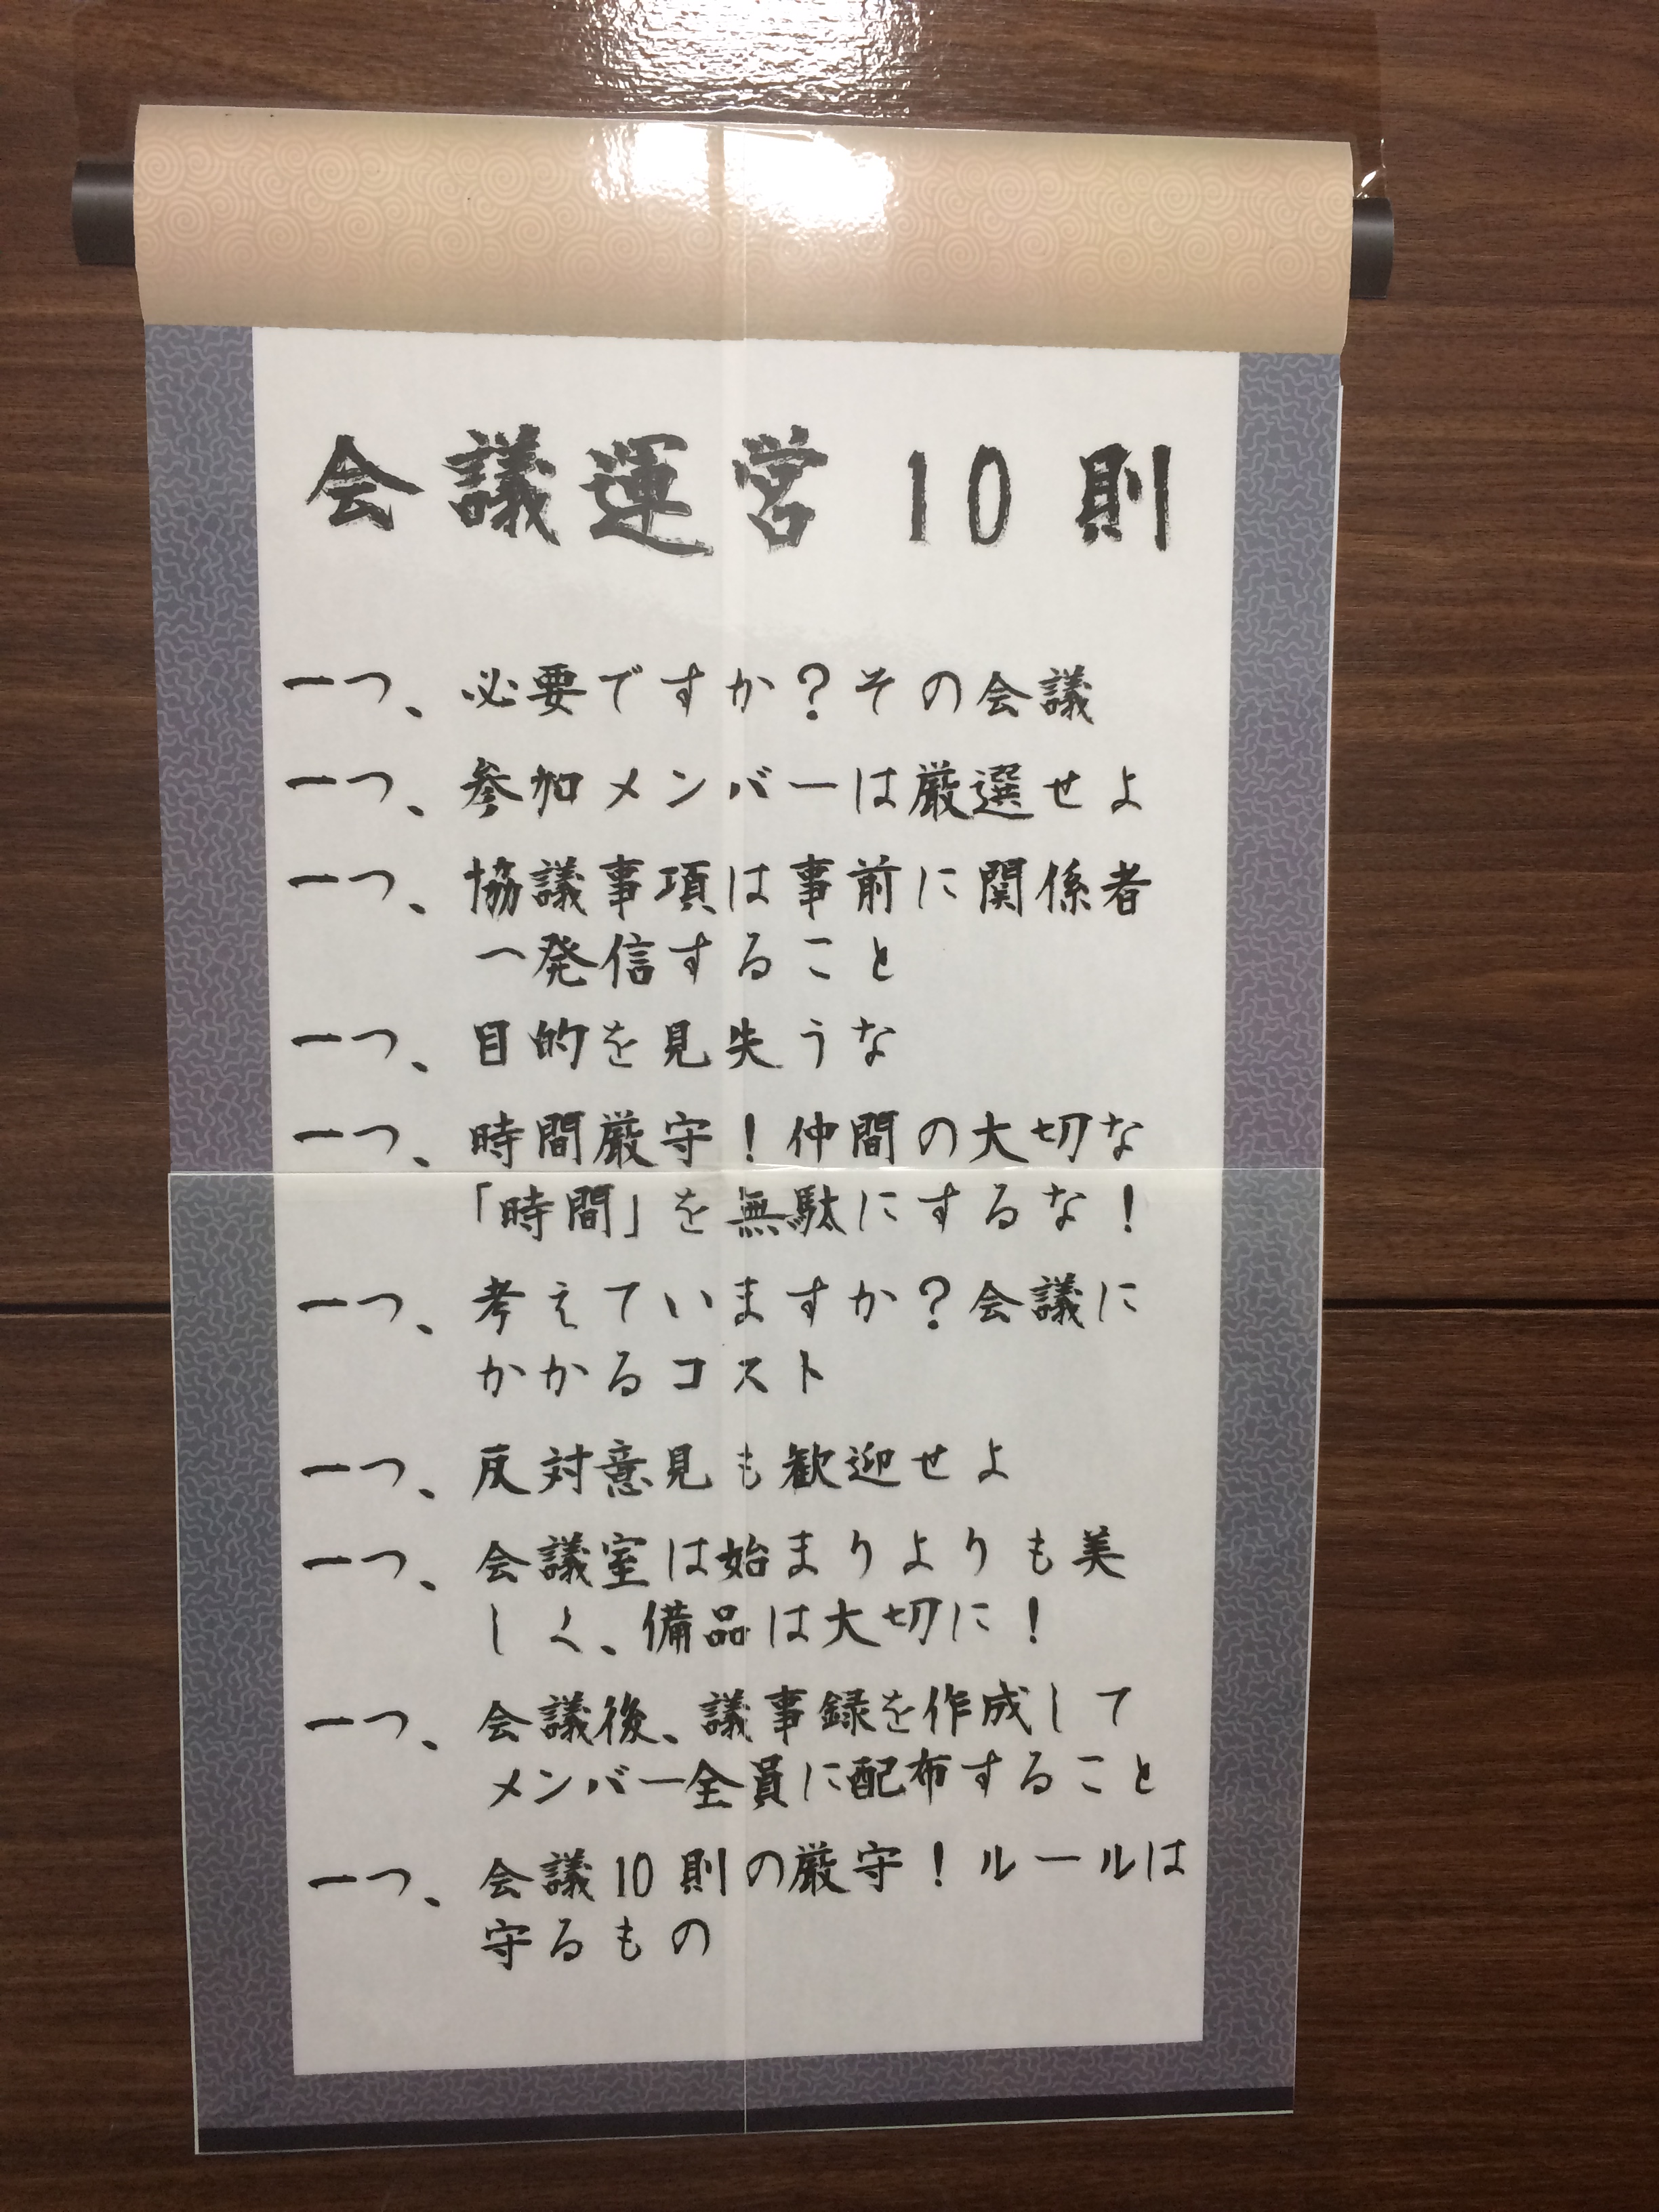 会議運営10則
一つ、必要ですか？その会議
一つ、参加メンバーは厳選せよ
一つ、協議事項は事前に関係者
へ発信すること
一つ、目的を見失うな
一つ、時間厳守！仲間の大切な
「時間」を無駄にするな！
一つ、考えていますか？会議に
かかるコスト
一つ、反対意見も歓迎せよ
一つ、会議室は始まりよりも美
しく、備品は大切に！
一つ、会議後、議事録を作成して
メンバー全員に配布すること
一つ、会議10則の厳守！ルールは
守るもの